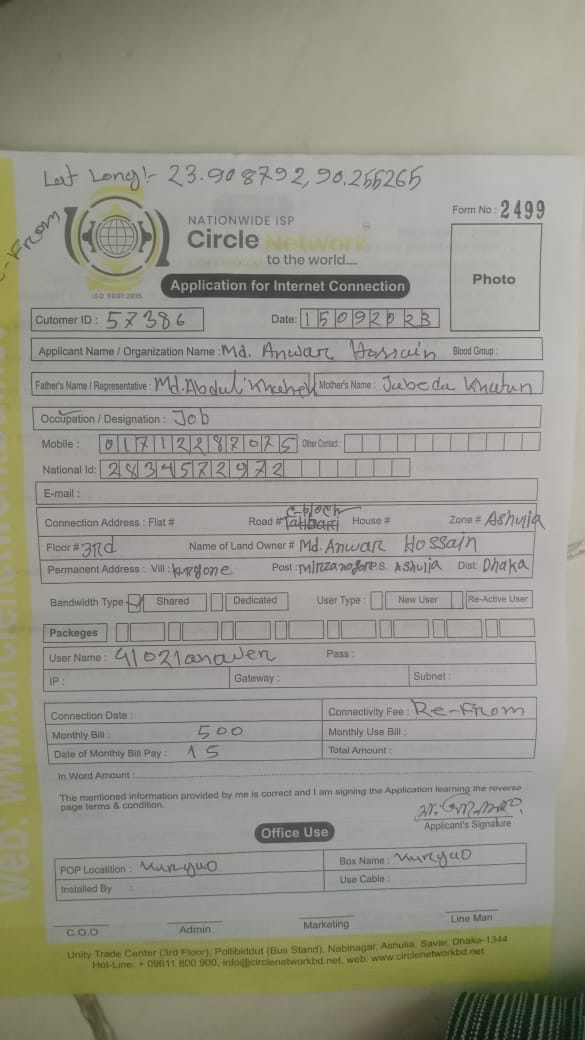 Lat Long:- 23.908792, 90.255265
Form No : 2499
NATIONWIDE ISP
Circle Network
to the world.....
ISO 9001:2015
Application for Internet Connection
Photo
Cutomer ID : 57386 Date: 15092023
Applicant Name / Organization Name : Md. Anwar Hossain Blood Group :
Father's Name / Representative : Md. Abdul Mother's Name : Jubeda Khatun
Occupation / Designation : Job
Mobile : 01712287075 Other Contact :
National Id: 2834572972
E-mail :
Connection Address : Flat # Road # C-block House # Zone # Ashulia
Floor # 3rd Name of Land Owner # Md. Anwar Hossain
Permanent Address : Vill : Post : P.S. Ashulia Dist: Dhaka
Bandwidth Type Shared Dedicated User Type : New User Re-Active User
Packeges
User Name : 41021anawer Pass :
IP : Gateway : Subnet :
Connection Date : Connectivity Fee : Re-From
Monthly Bill : 500 Monthly Use Bill :
Date of Monthly Bill Pay : 15 Total Amount :
In Word Amount :
The mentioned information provided by me is correct and I am signing the Application learning the reverse
page terms & condition.
Applicant's Signature
Office Use
POP Locatition : Box Name :
Installed By : Use Cable :
C.O.O Admin Marketing Line Man
Unity Trade Center (3rd Floor), Pollibiddut (Bus Stand), Nabinagar, Ashulia, Savar, Dhaka-1344
Hot-Line: + 09611 800 900, info@circlenetworkbd.net, web: www.circlenetworkbd.net
web: www.circlenetworkbd.net